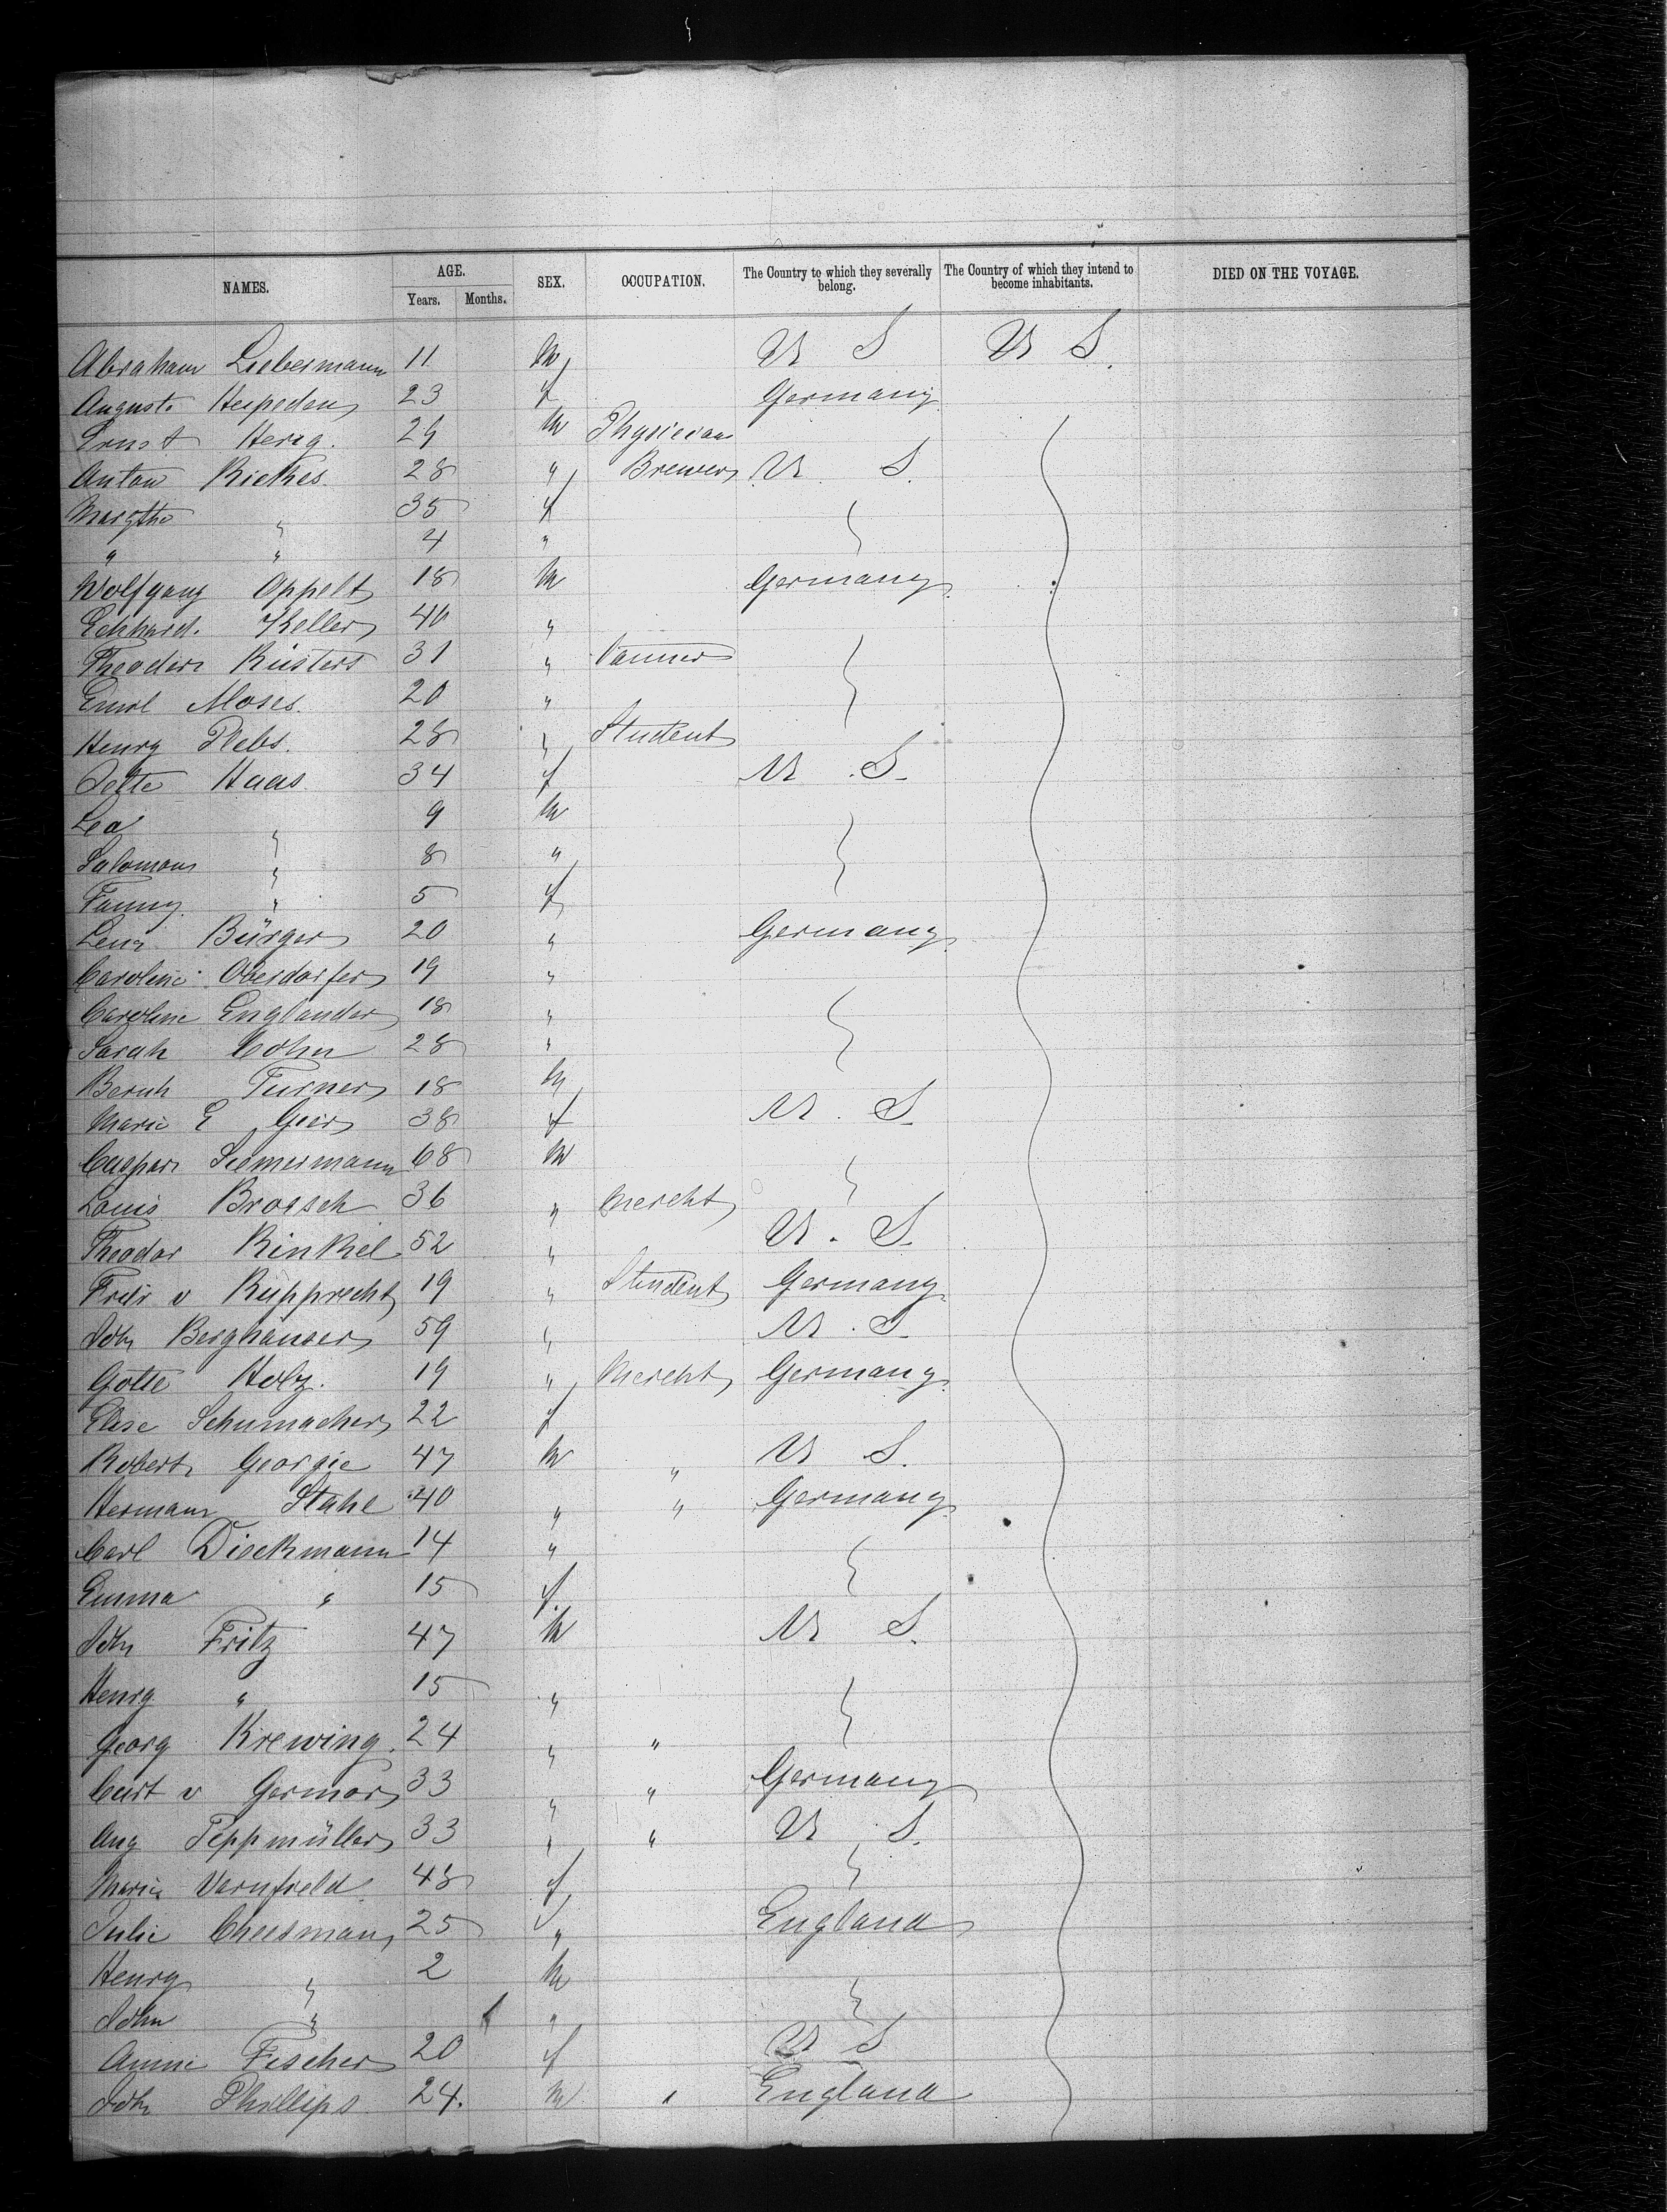 NAMES. AGE. Years. Months. SEX. OCCUPATION. The Country to which they severally belong. The Country of which they intend to become inhabitants. DIED ON THE VOYAGE.
Abraham Liebermann 11 m U S U S.
Auguste Hespeden 23 f Germany
Ernst Herzg. 29 m Physician
Anton Rickes 28 " Brewer U. S.
Margthe " 35 f
" " 4 "
Wolfgang Oppelt 18 m Germany
Eckhard. Keller 40 "
Theodor Küsters 31 " Tanner
Emil Moses. 20 "
Henry Plebs. 28 " Student
Jette Haas 34 f U. S.
Leo " 9 m
Salomon " 8 "
Fanny " 5 f
Lena Bürger 20 " Germany
Caroline Oberdorfer 19 "
Caroline Englander 18 "
Sarah Cohn 28 "
Bernh Turner 18 m
Marie E Geier 38 f U. S.
Caspar Siemermann 68 m
Louis Brosch 36 " Mercht
Theodor Kinkel 52 " U. S.
Friedr v Rupprecht 19 " Student Germany
Joh Berghäuser 59 " U. S.
Gotte Holz. 19 " Mercht Germany
Elise Schumacher 22 f
Robert Georgie 47 m " U S.
Hermann Stahl 40 " " Germany
Carl Dieckmann 14 "
Emma " 15 f.
Joh Fritz 47 m U S.
Henry " 15 "
Georg Krewing. 24 " "
Curt v Germar 33 " " Germany
Aug Peppmüller 33 " " U S.
Maria Varnfield 48 f
Julie Cheesman 25 " England
Henry " 2 m
John " 1 "
Annie Fischer 20 f U S
Joh Phillips 24. m " England